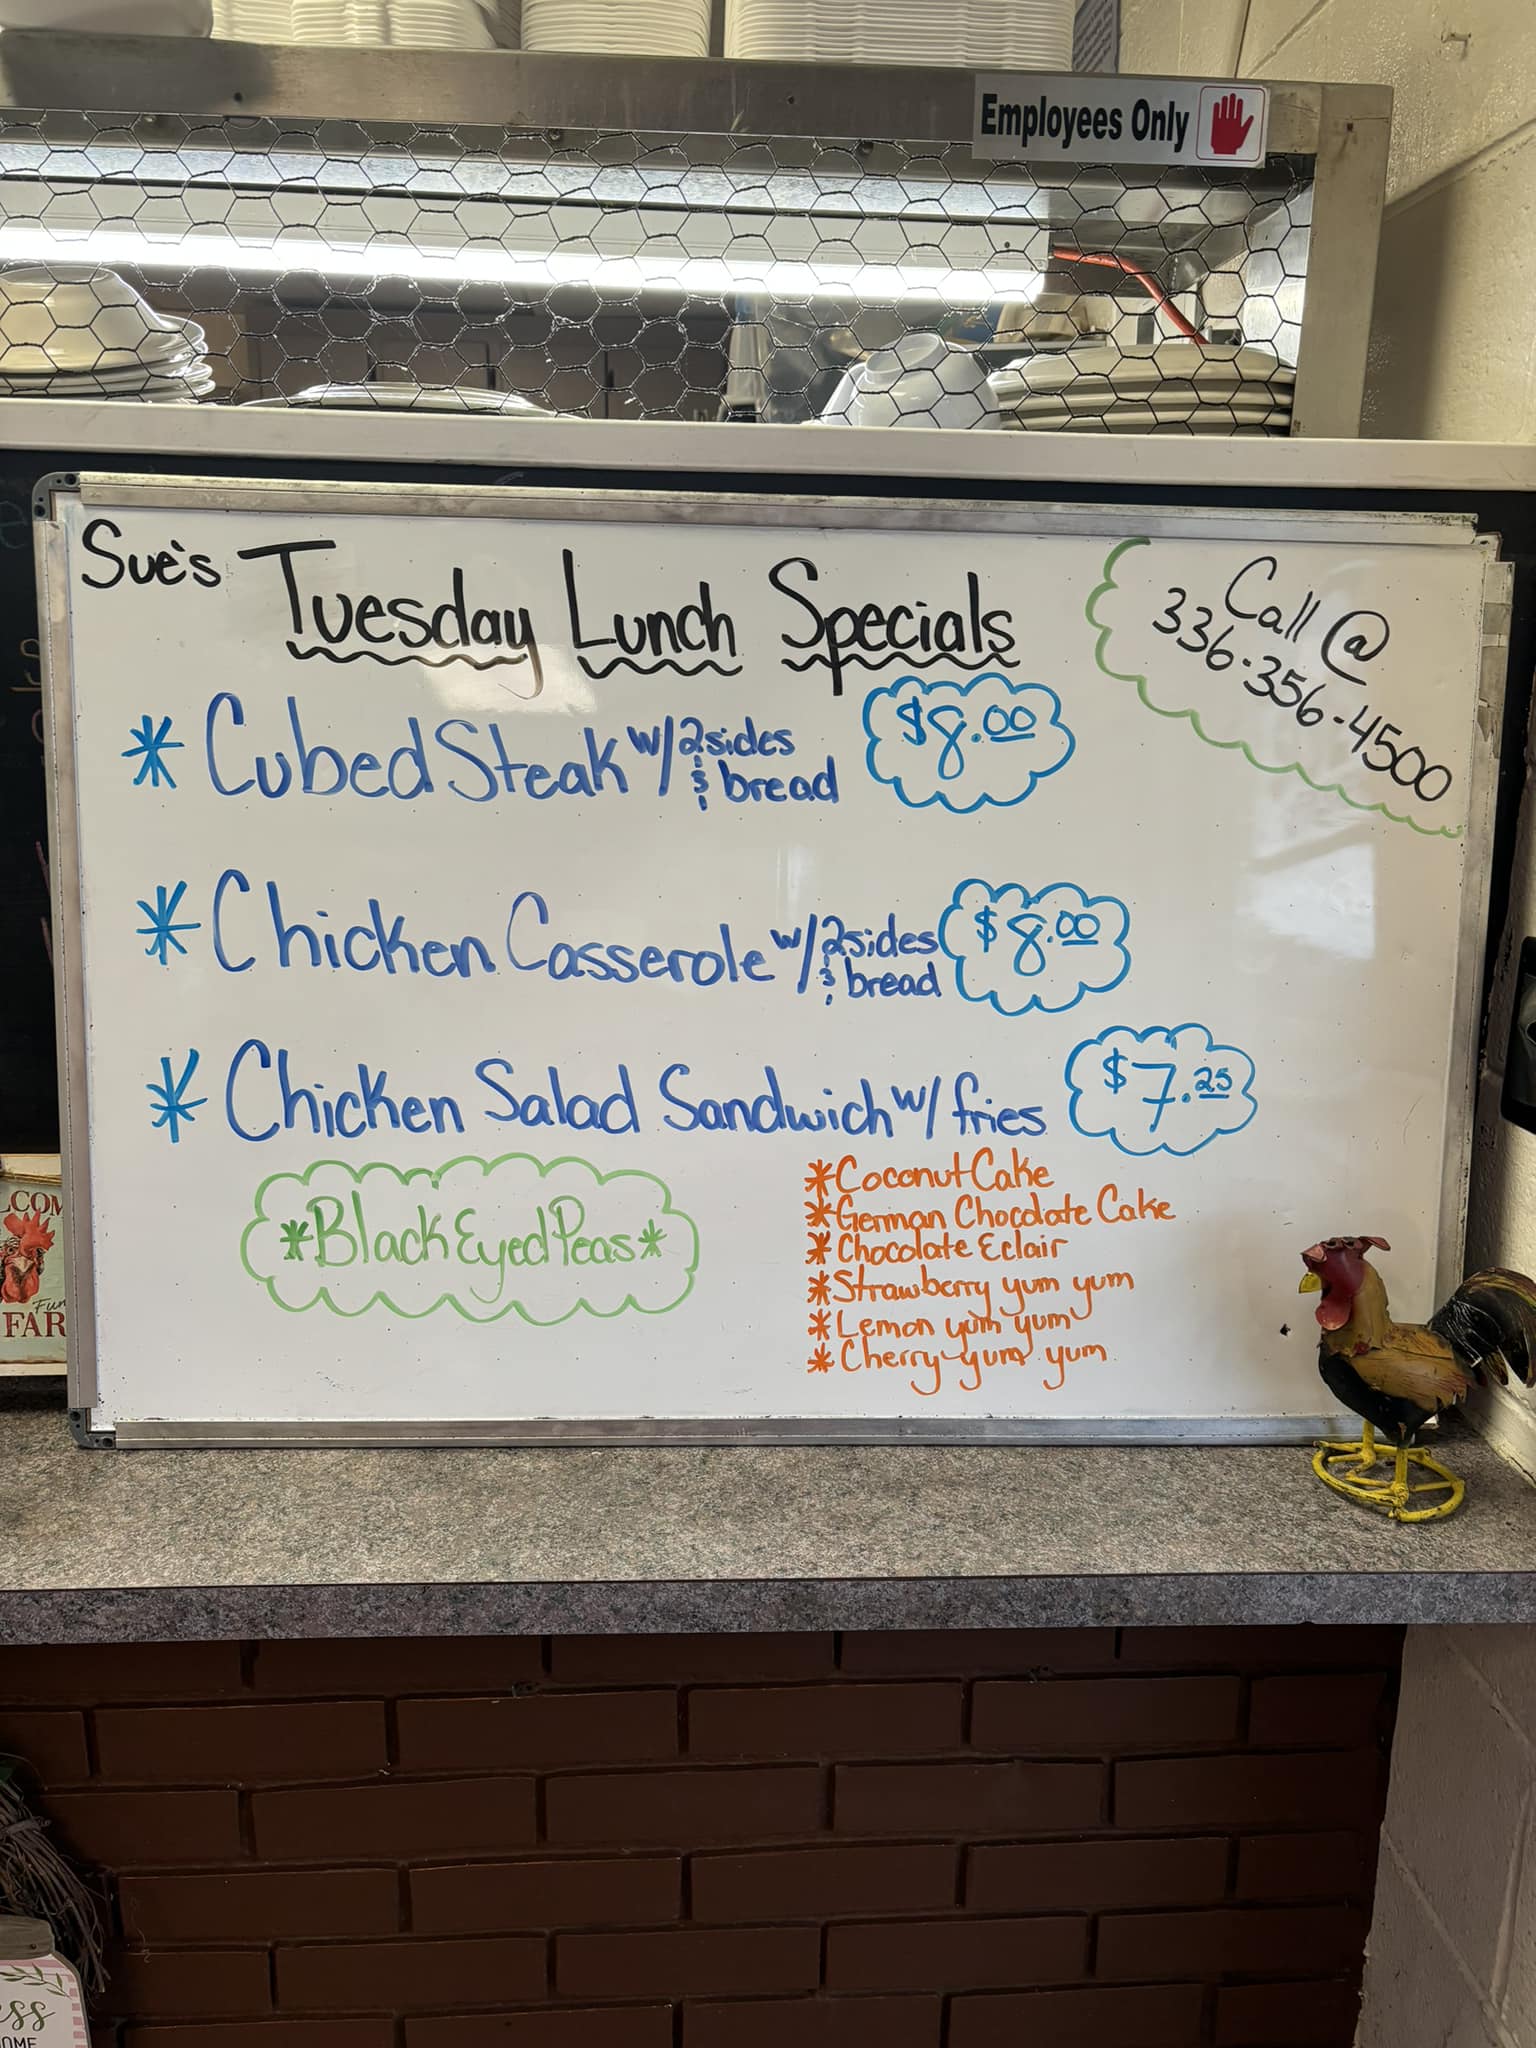 Employees Only
Sue's Tuesday Lunch Specials
Call @
336-356-4500
* Cubed Steak w/ 2 sides & bread $8.00
* Chicken Casserole w/ 2 sides & bread $8.00
* Chicken Salad Sandwich w/ fries $7.25
*Black Eyed Peas*
*Coconut Cake
*German Chocolate Cake
*Chocolate Eclair
*Strawberry yum yum
*Lemon yum yum
*Cherry yum yum